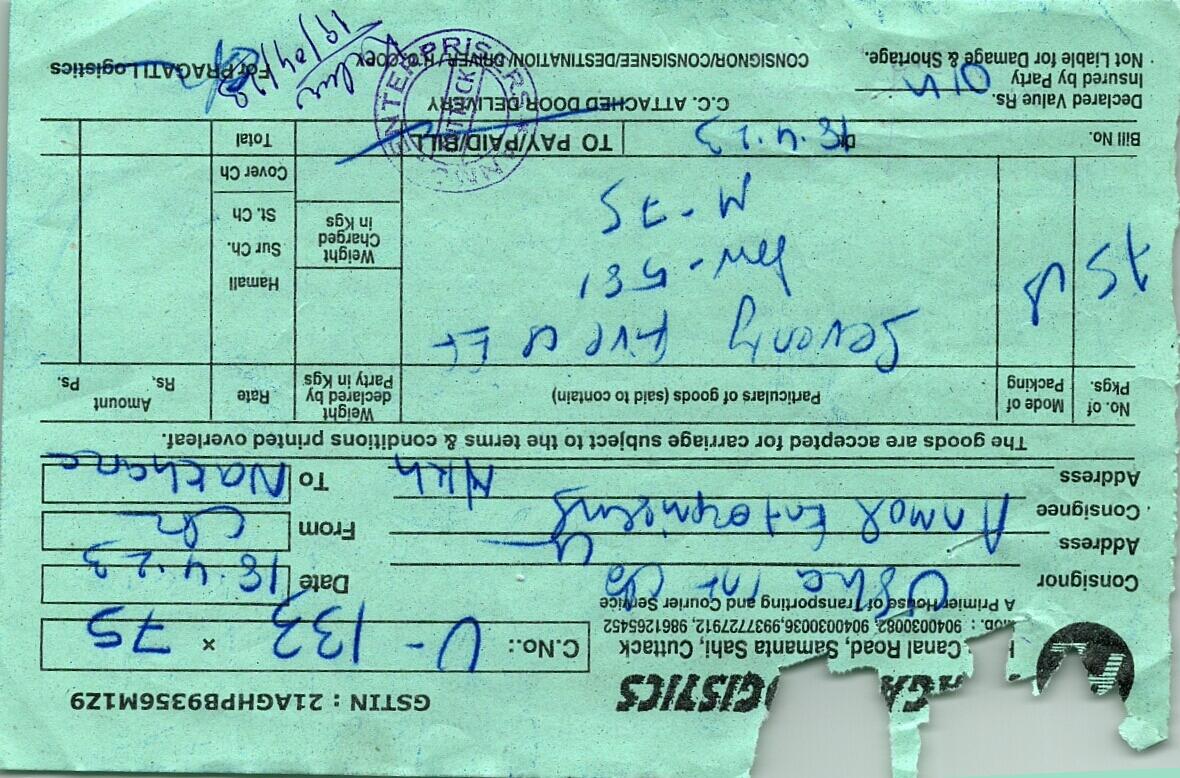 GSTIN : 21AGHPB9356M1Z9
LOGISTICS
Canal Road, Samanta Sahi, Cuttack
9040030082, 9040030036, 9937727912, 9861265452
A Primier House of Transporting and Courier Service
C.No.: U - 133 × 75
Consignor Usha Int. Co
Date 18.4.23
Address
From
Consignee Anmol Enterprisers
Address Nkh
To Nakhara
The goods are accepted for carriage subject to the terms & conditions printed overleaf.
No. of Pkgs.
Mode of Packing
Particulars of goods (said to contain)
Weight declared by Party in Kgs
Rate
Amount
Rs, Ps.
75
Seventy Five
- 561
M - 75
Weight Charged in Kgs
Hamali
Sur Ch.
St. Ch
Cover Ch
Bill No. Dt. 18.4.23 TO PAY/PAID/BILL Total
C.C. ATTACHED DOOR DELIVERY
Declared Value Rs.
Insured by Party
Not Liable for Damage & Shortage.
CONSIGNOR/CONSIGNEE/DESTINATION/DRIVER/H.O. COPY
For PRAGATI Logistics
19/04/23